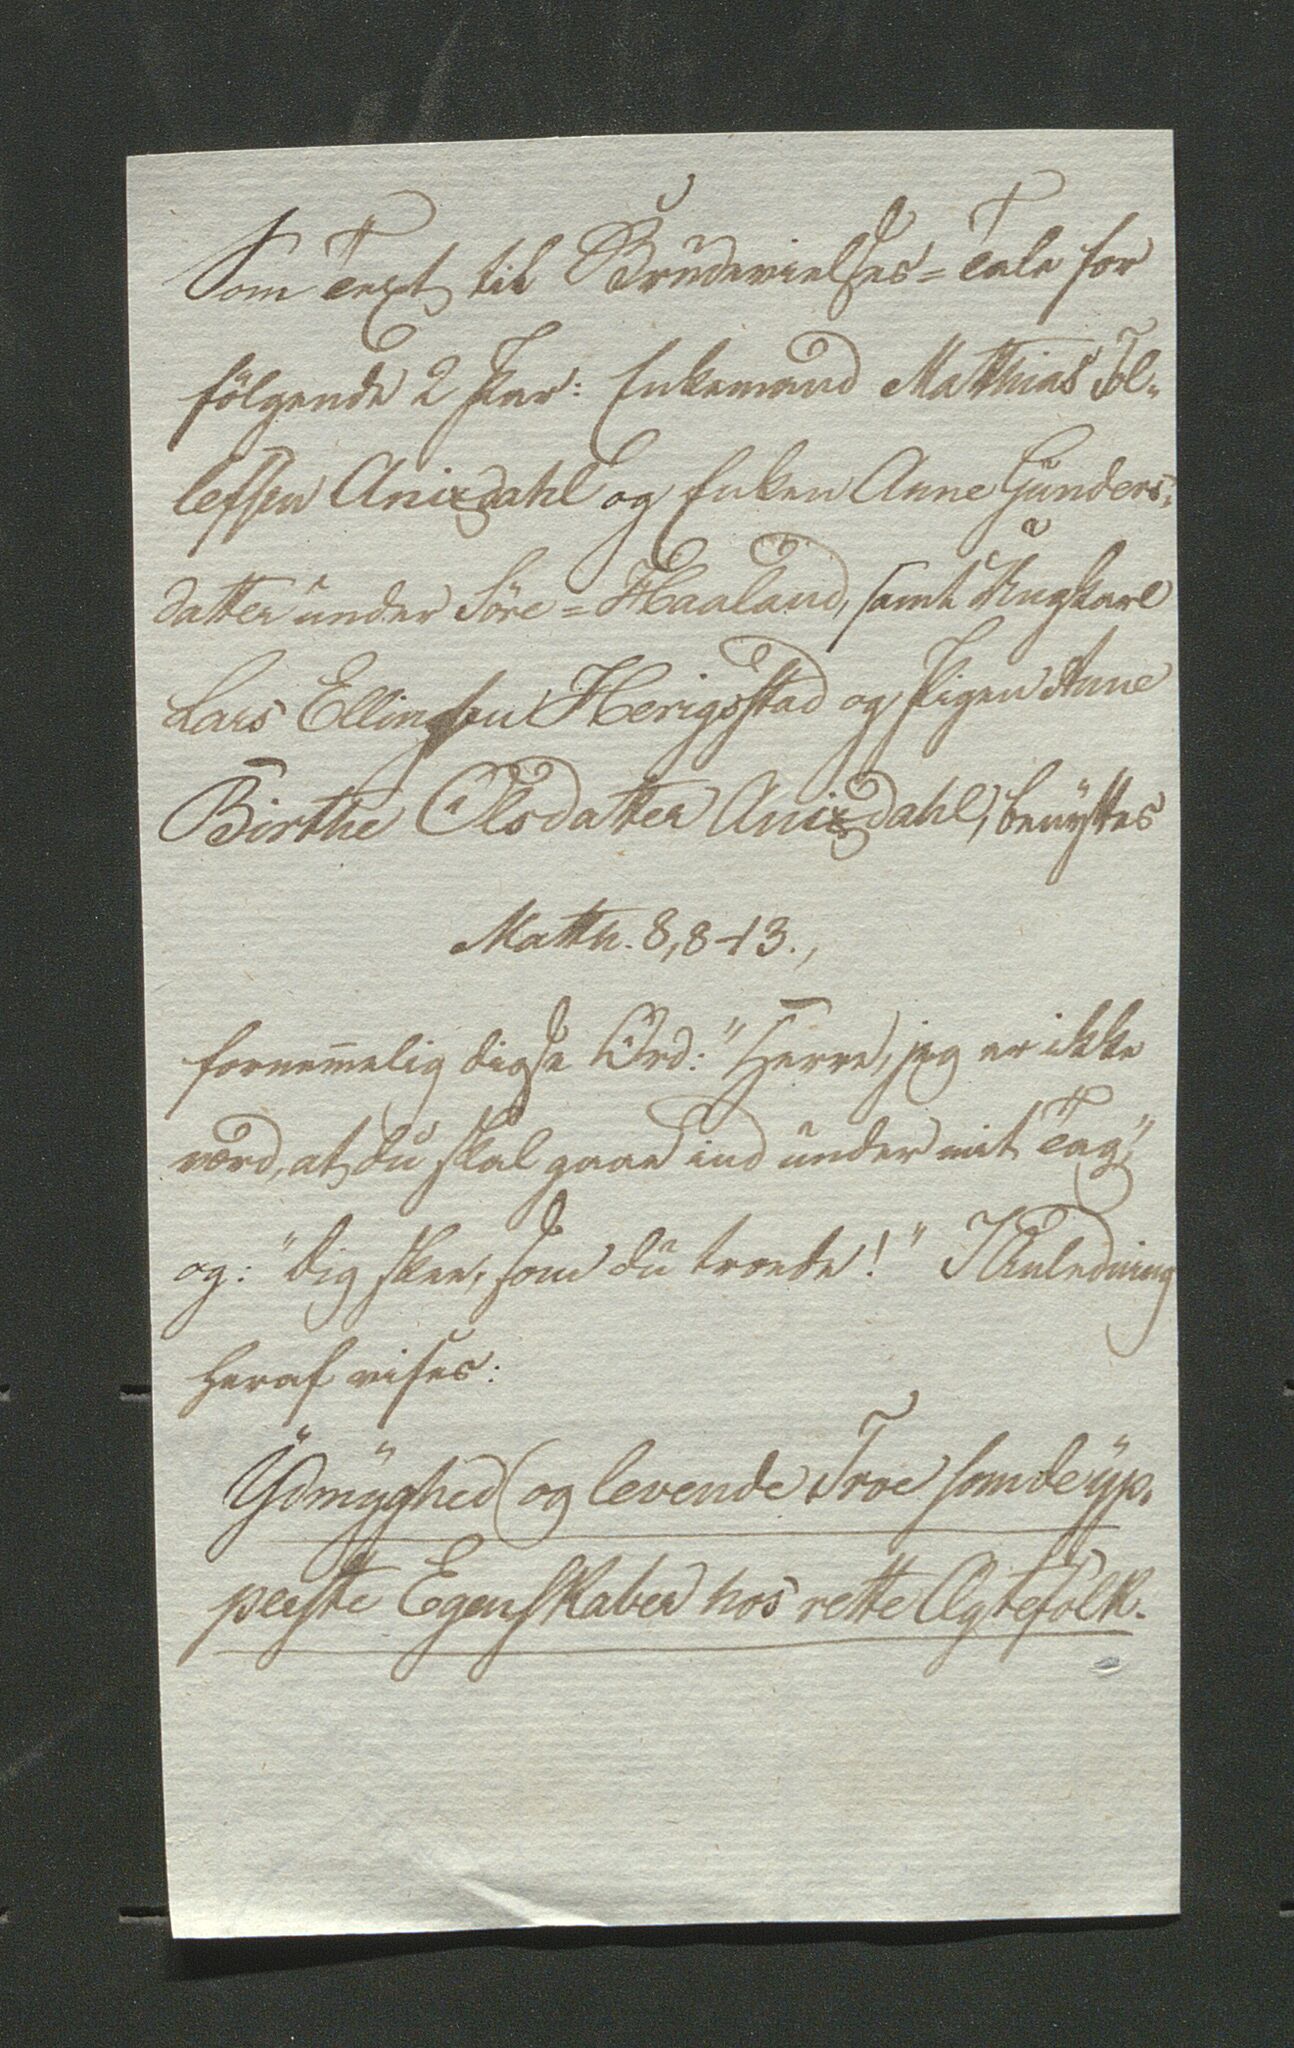 Som Text til Brudevielses=Tale for
fölgende 2 Par: Enkemand Matthias Tol-
lefsen Anixdahl og Enken Anne Gunders-
datter under Söre=Haaland, samt Ungkarl
Lars Ellingsen Herigsstad og Pigen Anne
Birthe Olsdatter Anixdahl, benyttes
Matth. 8, 8-13.,
fornemmelig disse Ord: "Herre, jeg er ikke
værd, at du skal gaae ind under mit Tag,"
og: "dig skee, som du troede!" I Anledning
heraf vises:
Ydmyghed og levende Troe som de yp-
perste Egenskaber hos rette Ægtefolk.